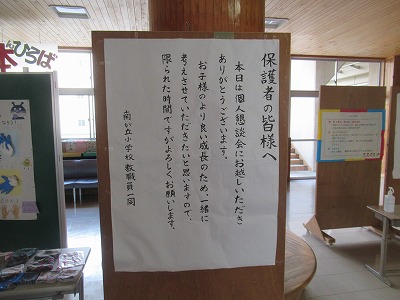 保護者の皆様へ
本日は個人懇談会にお越しいただき
ありがとうございます。
お子様のより良い成長のため、一緒に
考えさせていただきたいと思いますので、
限られた時間ですがよろしくお願いします。
南が丘小学校 教職員一同
ひろば